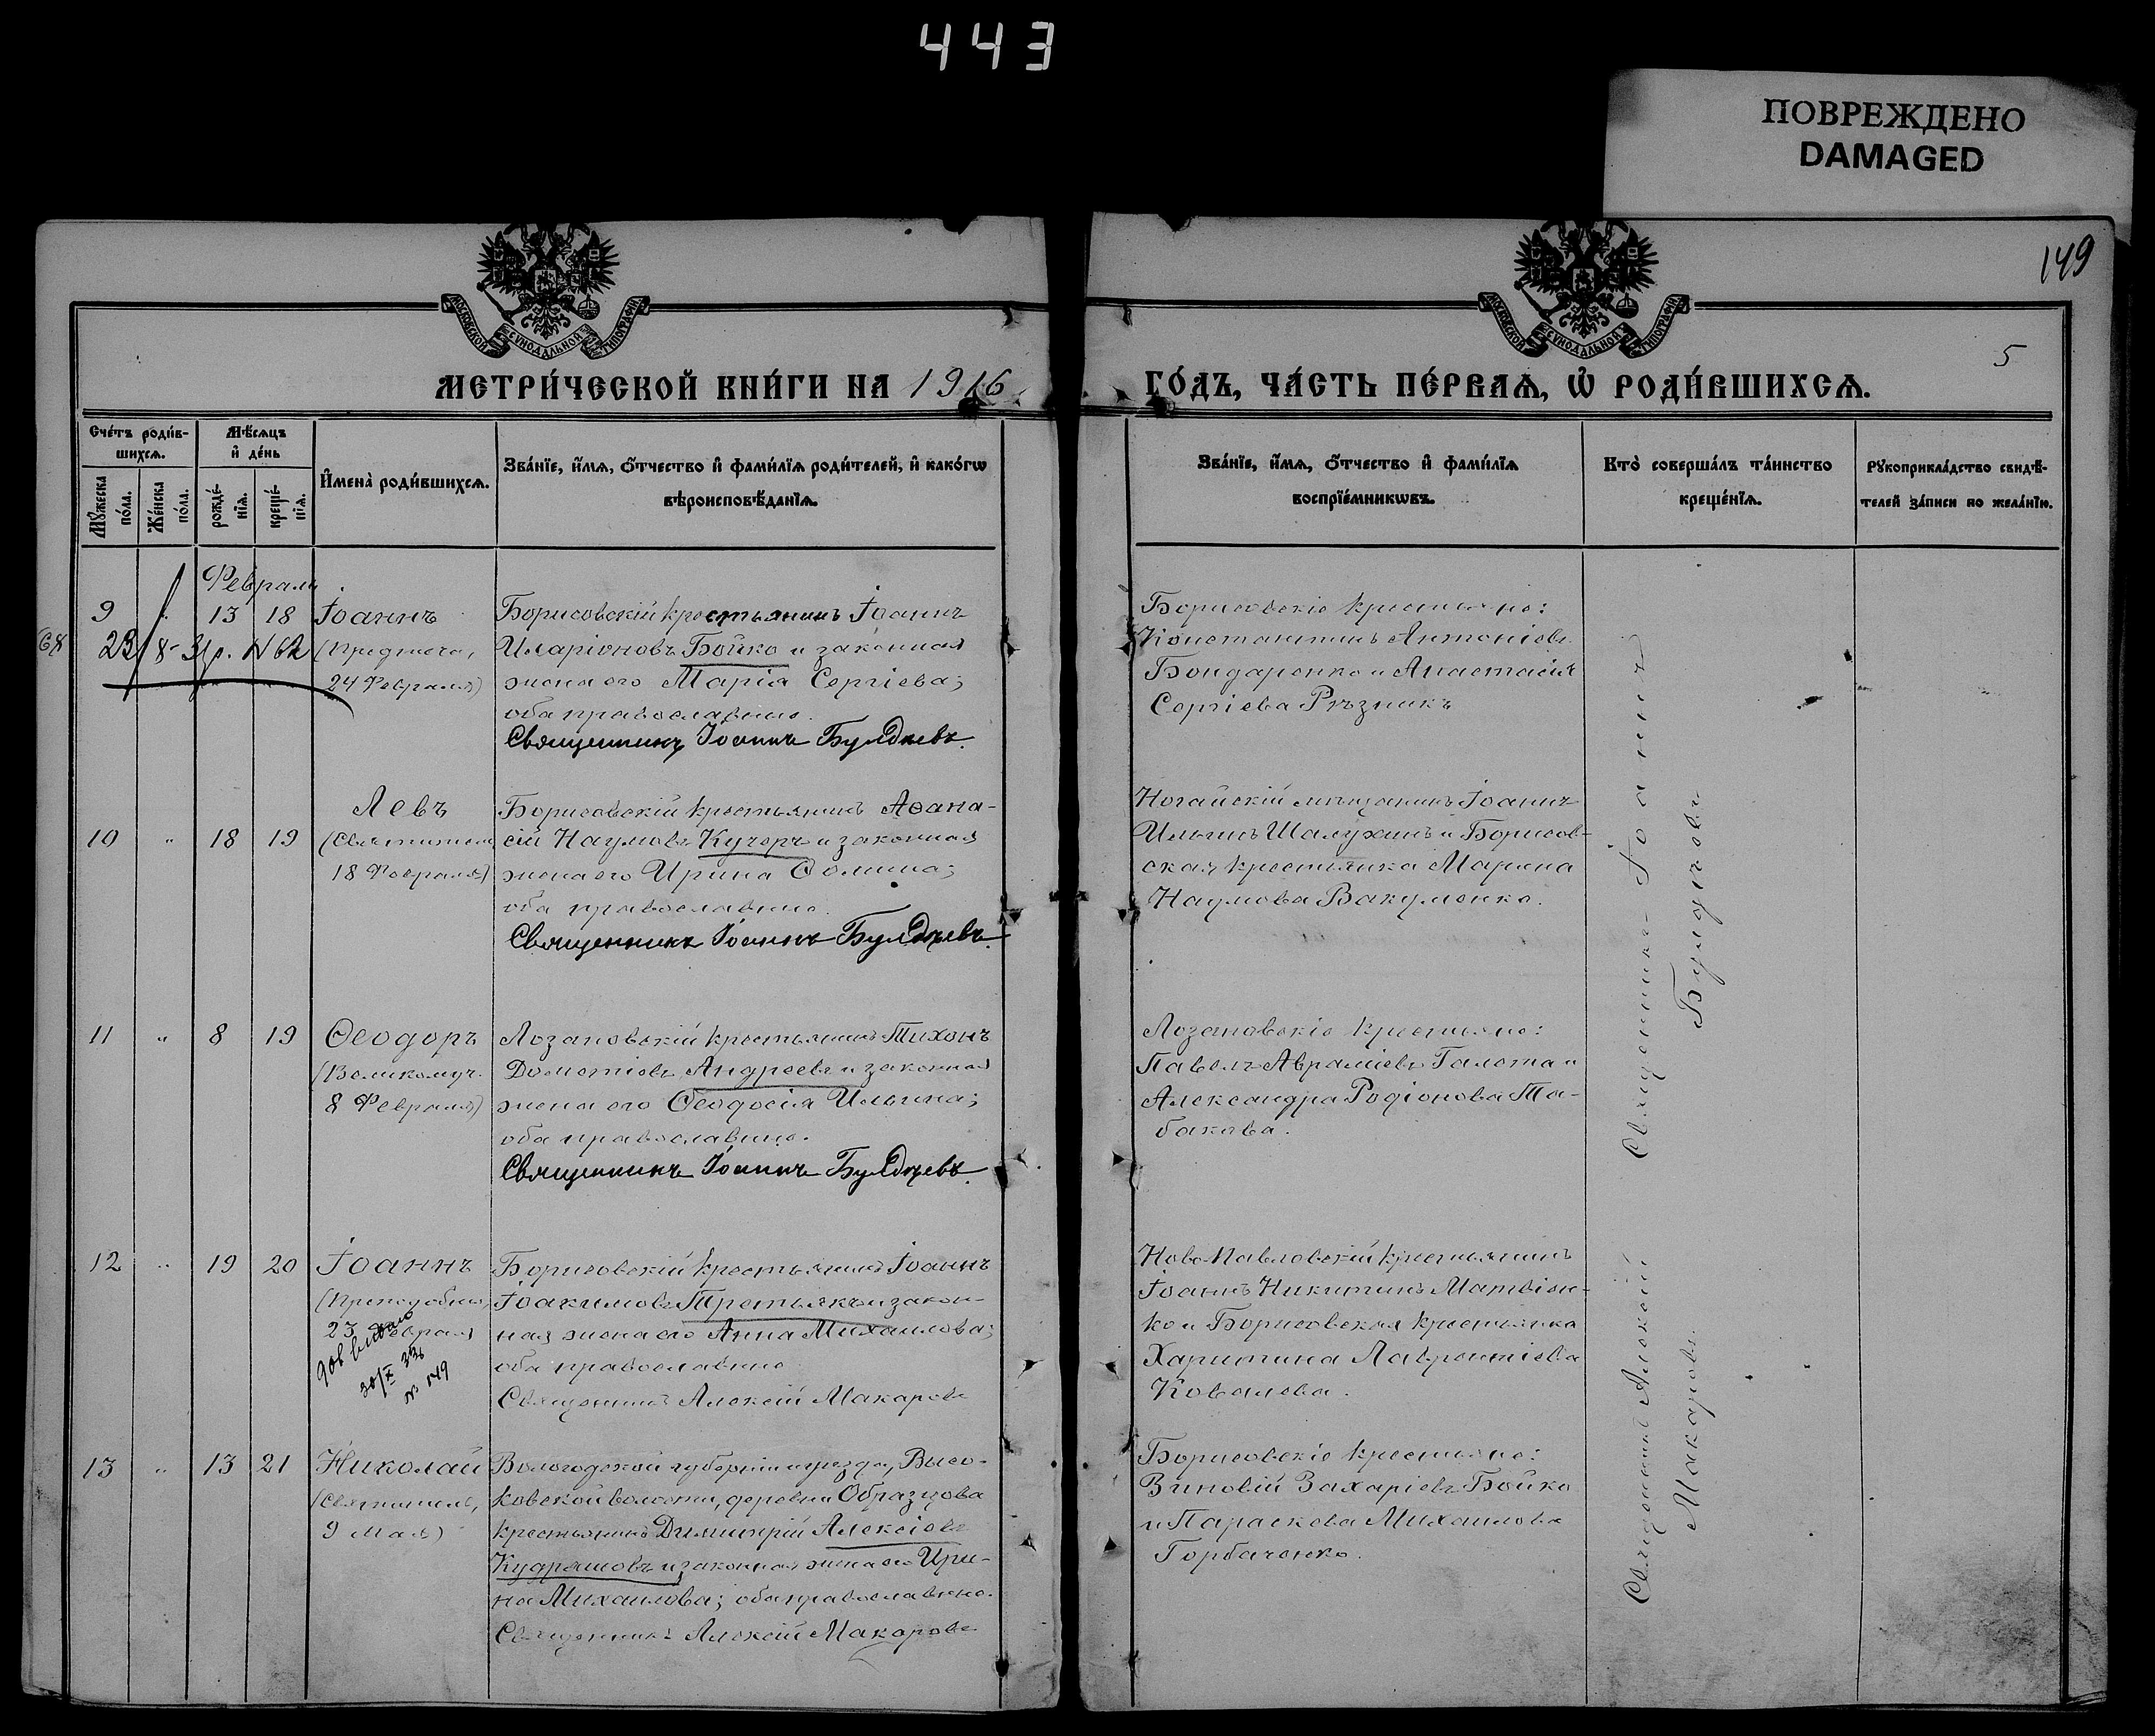 443
ПОВРЕЖДЕНО
DAMAGED
149
5
МОСКОВСКОЙ СѴНОДАЛЬНОЙ ТИПОГРАФІИ
МОСКОВСКОЙ СѴНОДАЛЬНОЙ ТИПОГРАФІИ
МЕТРИ́ЧЕСКОЙ КНИ́ГИ НА 1916
ГО́ДЪ, ЧА́СТЬ ПЕ́РВАѦ, Ѡ҆ РОДИ́ВШИХСѦ.
Сче́тъ роди́в-
шихсѧ.
Мꙋ́жеска по́ла.
Же́нска по́ла.
Мѣ́сѧцъ
и҆ де́нь
рожде́-
нїѧ.
креще́-
нїѧ.
И҆мена̀ роди́вшихсѧ.
Зва́нїе, и҆́мѧ, ѻ҆́тчество и҆ фами́лїѧ роди́телей, и҆ како́гѡ
вѣроисповѣ́данїѧ.
Зва́нїе, и҆́мѧ, ѻ҆́тчество и҆ фами́лїѧ
воспрїе́мникѡвъ.
Кто̀ соверша́лъ та́инство
креще́нїѧ.
Рꙋкоприкла́дство свидѣ́-
телей за́писи по жела́нїю.
Февраль
9 " 13 18 Іоаннъ
(Предтеча,
24 Февраля)
Борисовскій крестьянинъ Іоаннъ
Иларіоновъ Бойко и законная
жена его Марія Сергіева;
оба православные.
Священникъ Іоаннъ Булдчевъ.
Борисовскіе крестьяне:
Константинъ Антоніевъ
Бондаренко и Анастасія
Сергіева Рѣзникъ
10 " 18 19 Левъ
(Святитель
18 Февраля)
Борисовскій крестьянинъ Аѳана-
сій Наумовъ Кучеръ и законная
жена его Ирина Ѳомина;
оба православные.
Священникъ Іоаннъ
Ногайскій мѣщанинъ Іоаннъ
Ильинъ Шалухинъ и Борисов-
ская крестьянка Марина
Наумова Вакуленко.
11 " 8 19 Ѳеодоръ
(Великомуч.
8 Февраля)
Лозановскій крестьянинъ Тихонъ
Дометіевъ Андреевъ и законная
жена его Ѳеодосія Ильина;
оба православные.
Священникъ Іоаннъ
Лозановскіе крестьяне:
Павелъ Авраміевъ Галота и
Александра Родіонова Та-
бакова.
Священникъ Іоаннъ
12 " 19 20 Іоаннъ
(Преподобный,
23 Февраля
30/X 33
№ 149
Борисовскій крестьянинъ Іоаннъ
Іоакимовъ Третьякъ и закон-
ная жена его Анна Михаилова;
оба православные
Священникъ Алексій Макаровъ
Ново-Павловскій крестьянинъ
Іоаннъ Никитинъ Матвіен-
ко и Борисовская крестьянка
Харитина Лаврентіева
Ковалева.
13 " 13 21 Николай
(Святитель,
9 Мая)
Вологодской губерніи и уезда, Высо-
ковской волости, деревни Образцова
крестьянинъ Димитрій Алексіевъ
Кудряшовъ и законная жена его Ири-
на Михаилова; оба православные.
Священникъ Алексій Макаровъ
Борисовскіе крестьяне:
Зиновій Захаріевъ Бойко
и Параскева Михаилова
Горбаченко.
Священникъ Алексій
Макаровъ.